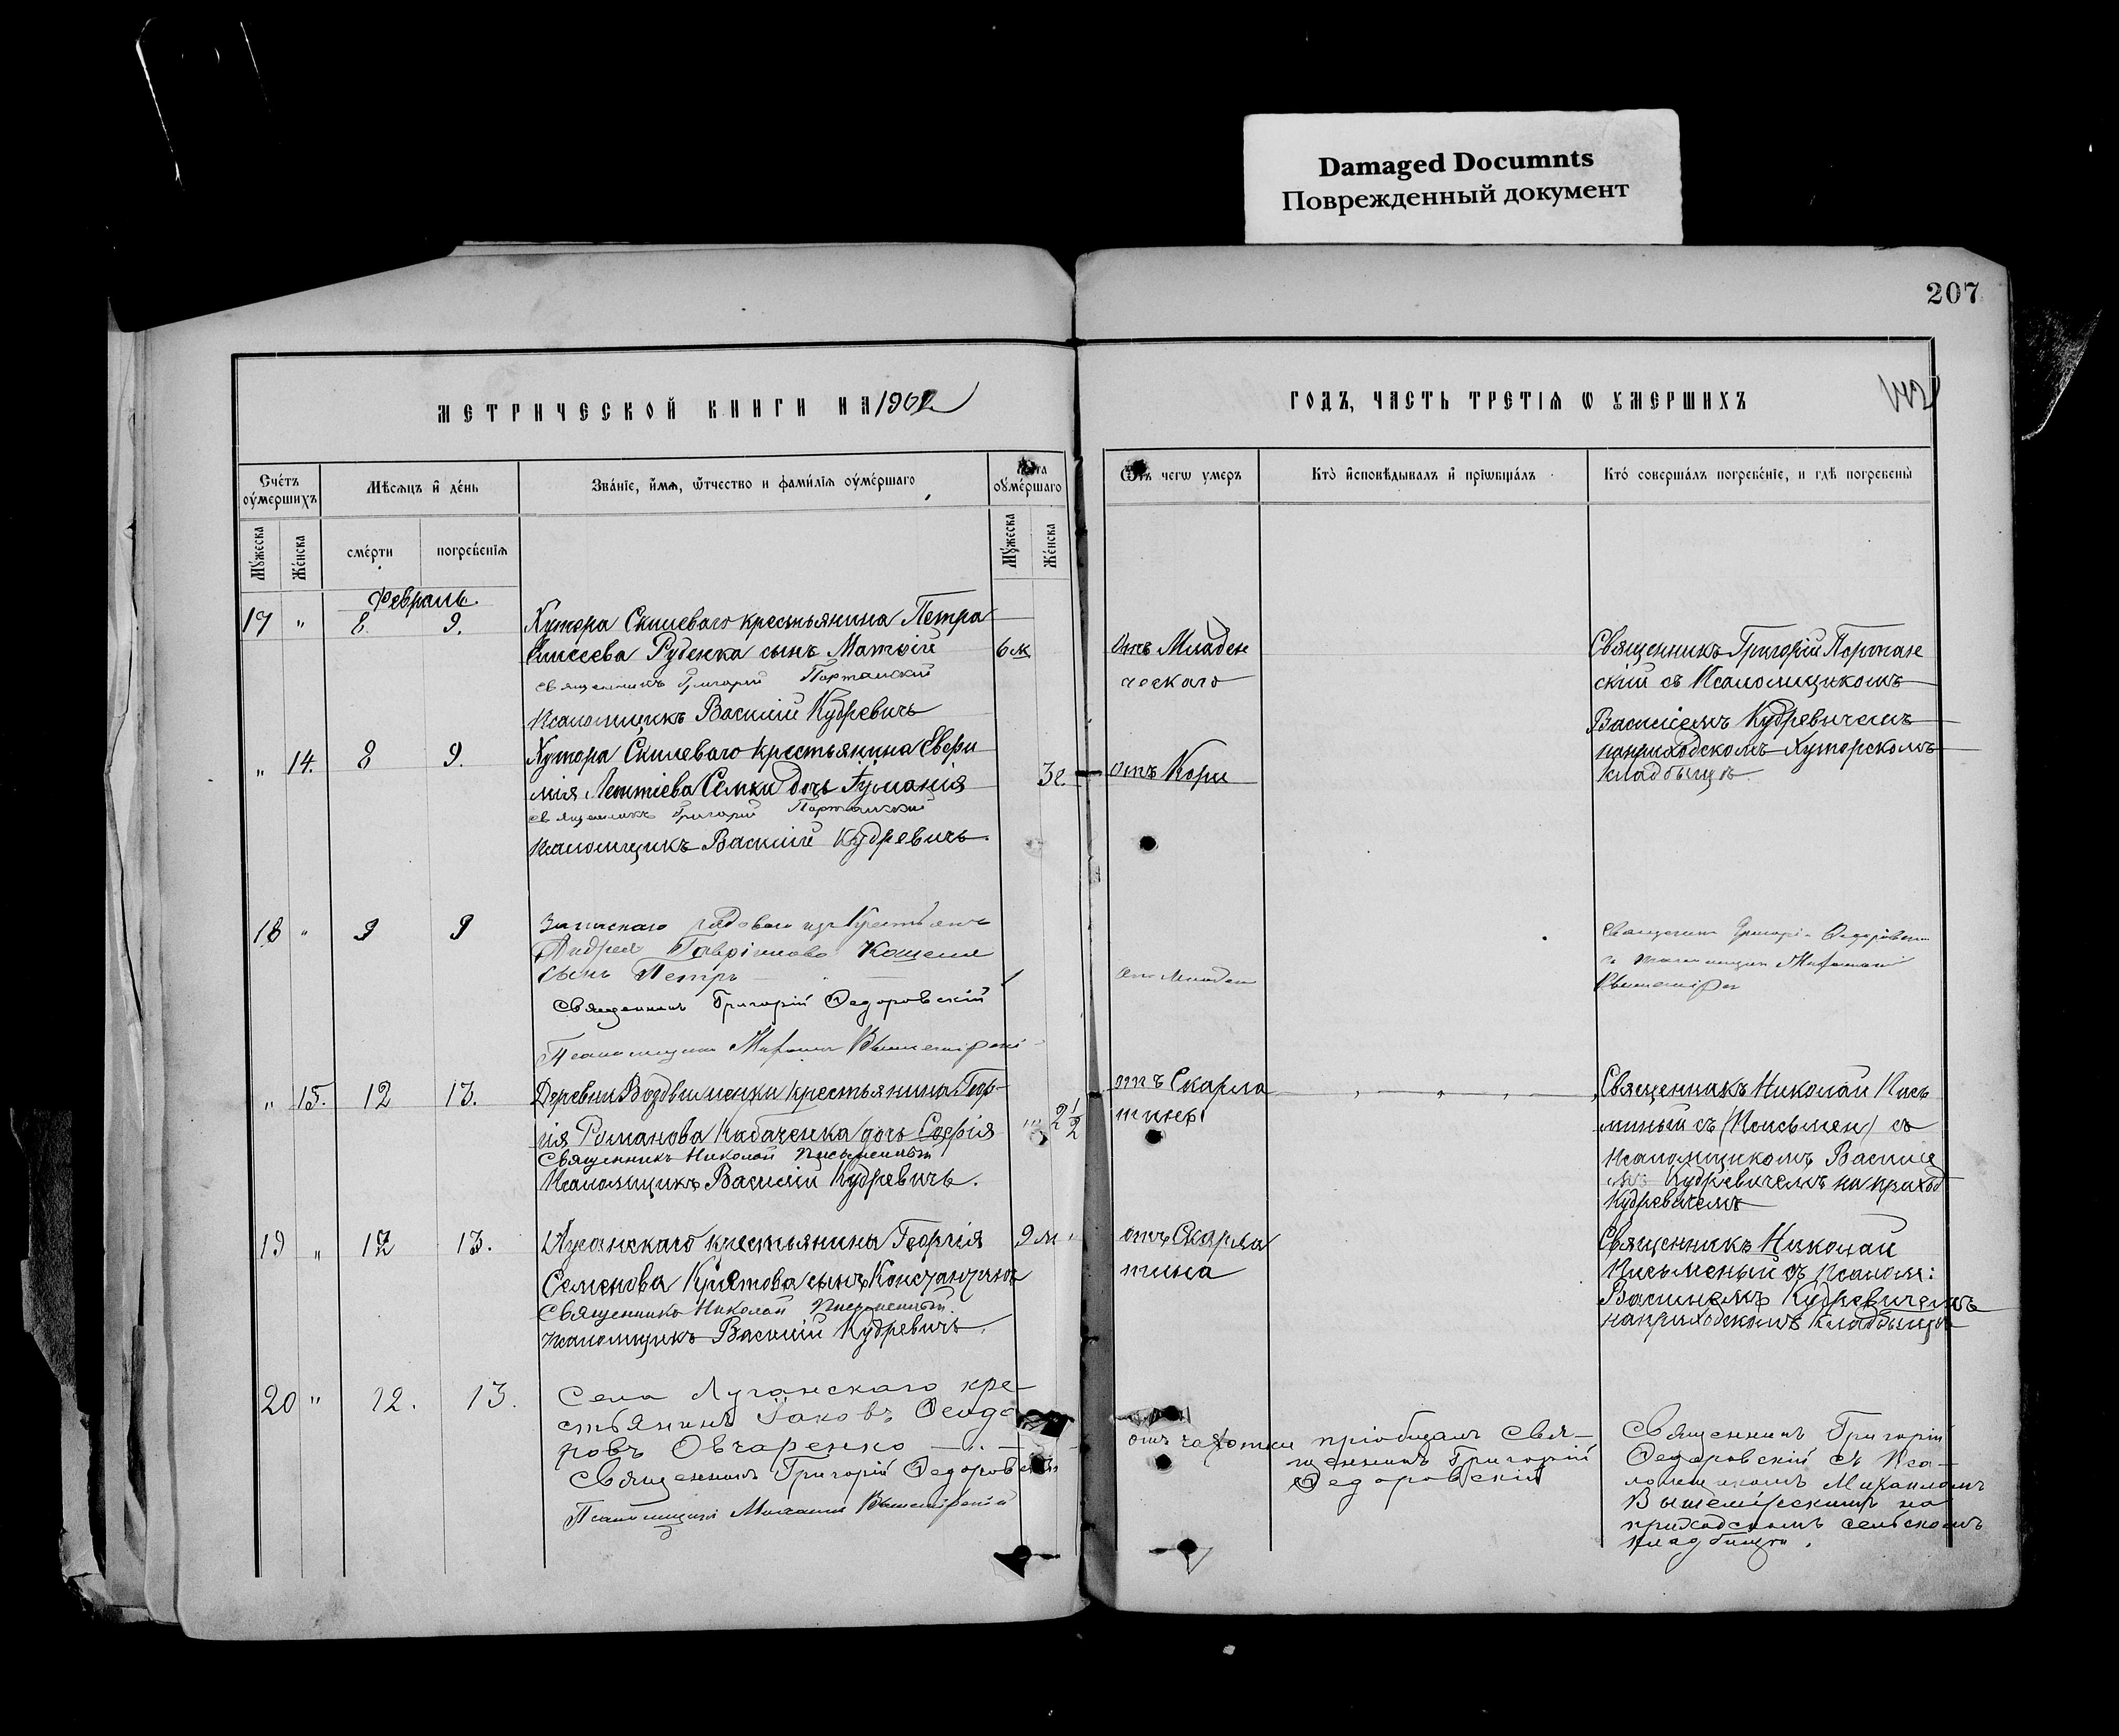 Damaged Documnts
Поврежденный документ
207
МЕТРИЧЕСКОЙ КНИГИ НА 1902
ГОДЪ, ЧАСТЬ ТРЕТІѦ Ѡ ОУМЕРШИХЪ
Сче́тъ оу҆ме́ршихъ
Мѣ́сѧцъ и҆ де́нь
Зва́нїе, и҆́мѧ, ѻ҆́тчество и фами́лїѧ оу҆ме́ршагѡ
Лѣта оу҆ме́ршаго
Ѿъ чегѡ умеръ
Кто̀ и҆сповѣ́дывалъ и҆ прїѡбща́лъ
Кто́ соверша́лъ погребе́нїе, и гдѣ погребены̀
Мꙋ́жеска
Же́нска
сме́рти
погребе́нїѧ
Мꙋ́жеска
Же́нска
Февраль.
17 " 8. 9. Хутора Скилеваго крестьянина Петра
Елисеева Руденка сынъ Матѳій 6 м
Священникъ Григорій Портанскій
Псаломщикъ Василій Кудревичъ
Отъ Младен
ческаго
Священникъ Григорій Портан
скій съ Псаломщикомъ
Василіемъ Кудревичемъ
на приходскомъ Хуторскомъ
кладбищѣ
" 14. 8 9. Хутора Скилеваго крестьянина Евфи
мія Леѵтіева Семки дочь Іуліанія 3 г.
Священникъ Григорій Портанскій
Псаломщикъ Василій Кудревичъ.
отъ Кори
18 " 9 9 Запаснаго рядового изъ Крестьянъ
Андрея Гавріилова Кощея
сынъ Петръ
Священникъ Григорій Ѳедоровскій
Псаломщикъ Михаилъ Вышемірскій
Отъ Младен
Священникъ Григорій Ѳедоровскій
" 15. 12 13. Деревни Воздвиженки крестьянина Геор-
гія Романова Кабаченка дочь Софія 2 1/2
Священникъ Николай Письменный
Псаломщикъ Василій Кудревичъ.
отъ Скарла
тины
Священникъ Николай Пись
менный съ (Письмен) съ
Псаломщикомъ Василіе
мъ Кудревичемъ на приход
Кудревичемъ
19 " 12 13. Луганскаго крестьянина Георгія 9 м "
Семенова сынъ Константинъ
Священникъ Николай Письменный.
Псаломщикъ Василій Кудревичъ.
отъ Скарла
тина
Священникъ Николай
Письменый съ Псалом:
Василіемъ Кудревичемъ
на приходскомъ Кладбищѣ
20 " 12. 13. Села Луганскаго кре-
стьянинъ Іаковъ Ѳеодо
ровъ Овчаренко
Священникъ Григорій Ѳедоровскій
Псаломщикъ Михаилъ Вышемірскій
отъ чахотки
пріобщалъ Свя-
щенникъ Григорій
Ѳедоровскій
Священникъ Григорій
Ѳедоровскій съ Пса-
ломщикомъ Михаиломъ
Вышемірскимъ на
приходскомъ сельскомъ
кладбищѣ.